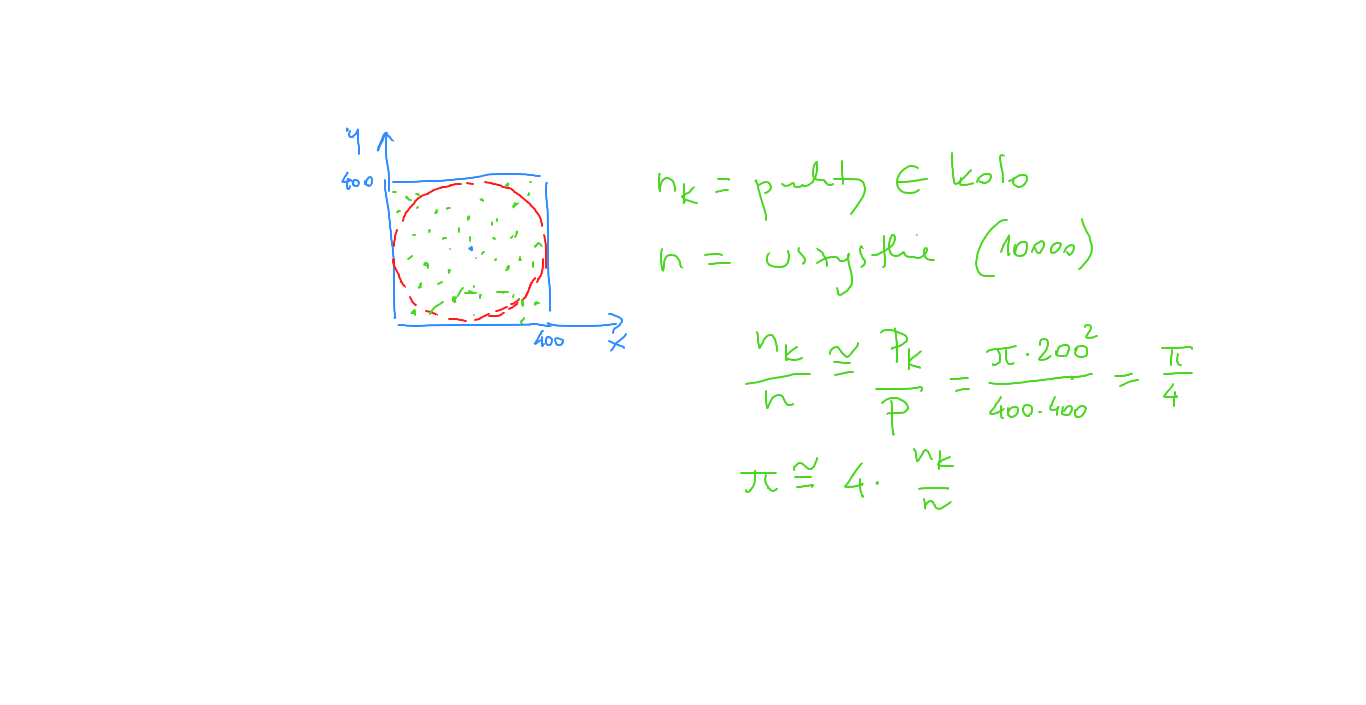 y
400
400
x
n_k = punkty ∈ koło
n = wszystkie (10000)
n_k/n ≅ P_k/P = π·200²/400·400 = π/4
π ≅ 4· n_k/n